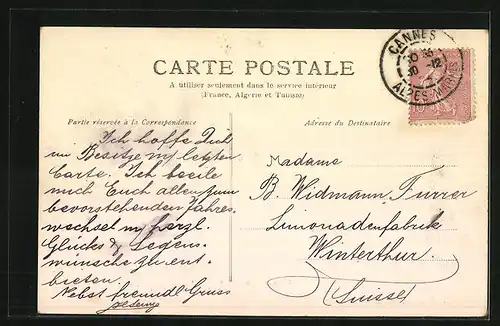 CARTE POSTALE
A utiliser seulement dans le service intérieur
(France, Algérie et Tunisie)
Partie réservée à la Correspondance
Adresse du Destinataire
CANNES
ALPES-MARITIMES
Ich hoffe Dich
im Besitze m/ letzten
Carte. Ich beeile
mich Euch allen zum
bevorstehenden Jahres-
wechsel m/ herzl.
Glücks & Segens-
wünsche zu ent-
bieten.
Nebst freundl Gruss
Madame
B. Widmann-Furrer
Limonadenfabrik
Winterthur.
(Suisse)